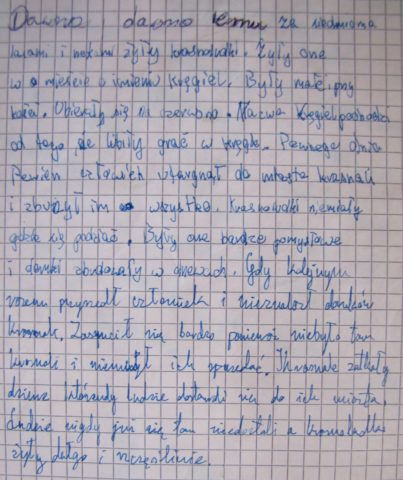 Dawno dawno temu za siedmioma
lasami i rzekami żyły krasnoludki. Żyły one
w mieście o imieniu Kręgiel. Były małe, przy
kości. Ubierały się na czerwono. Nazwa Kręgiel pochodzi
od tego, że lubiły grać w kręgle. Pewnego dnia
Pewien człowiek wtargnął do miasta krasnali
i zburzył im wszystko. Krasnoludki niemiały
gdzie się podziać. Były one bardzo pomysłowe
i domki zbudowały w drzewach. Gdy kolejnym
razem przyszedł człowiek i nieznalazł domków
krasnali. Zasmucił się bardzo ponieważ niebyło tam
krasnali i niemógł ich sprzedać. zatkały
dziure którędy ludzie dostawali się do ich miasta.
Ludzie nigdy już się tam niedostali a krasnoludki
żyły długo i szczęśliwie.